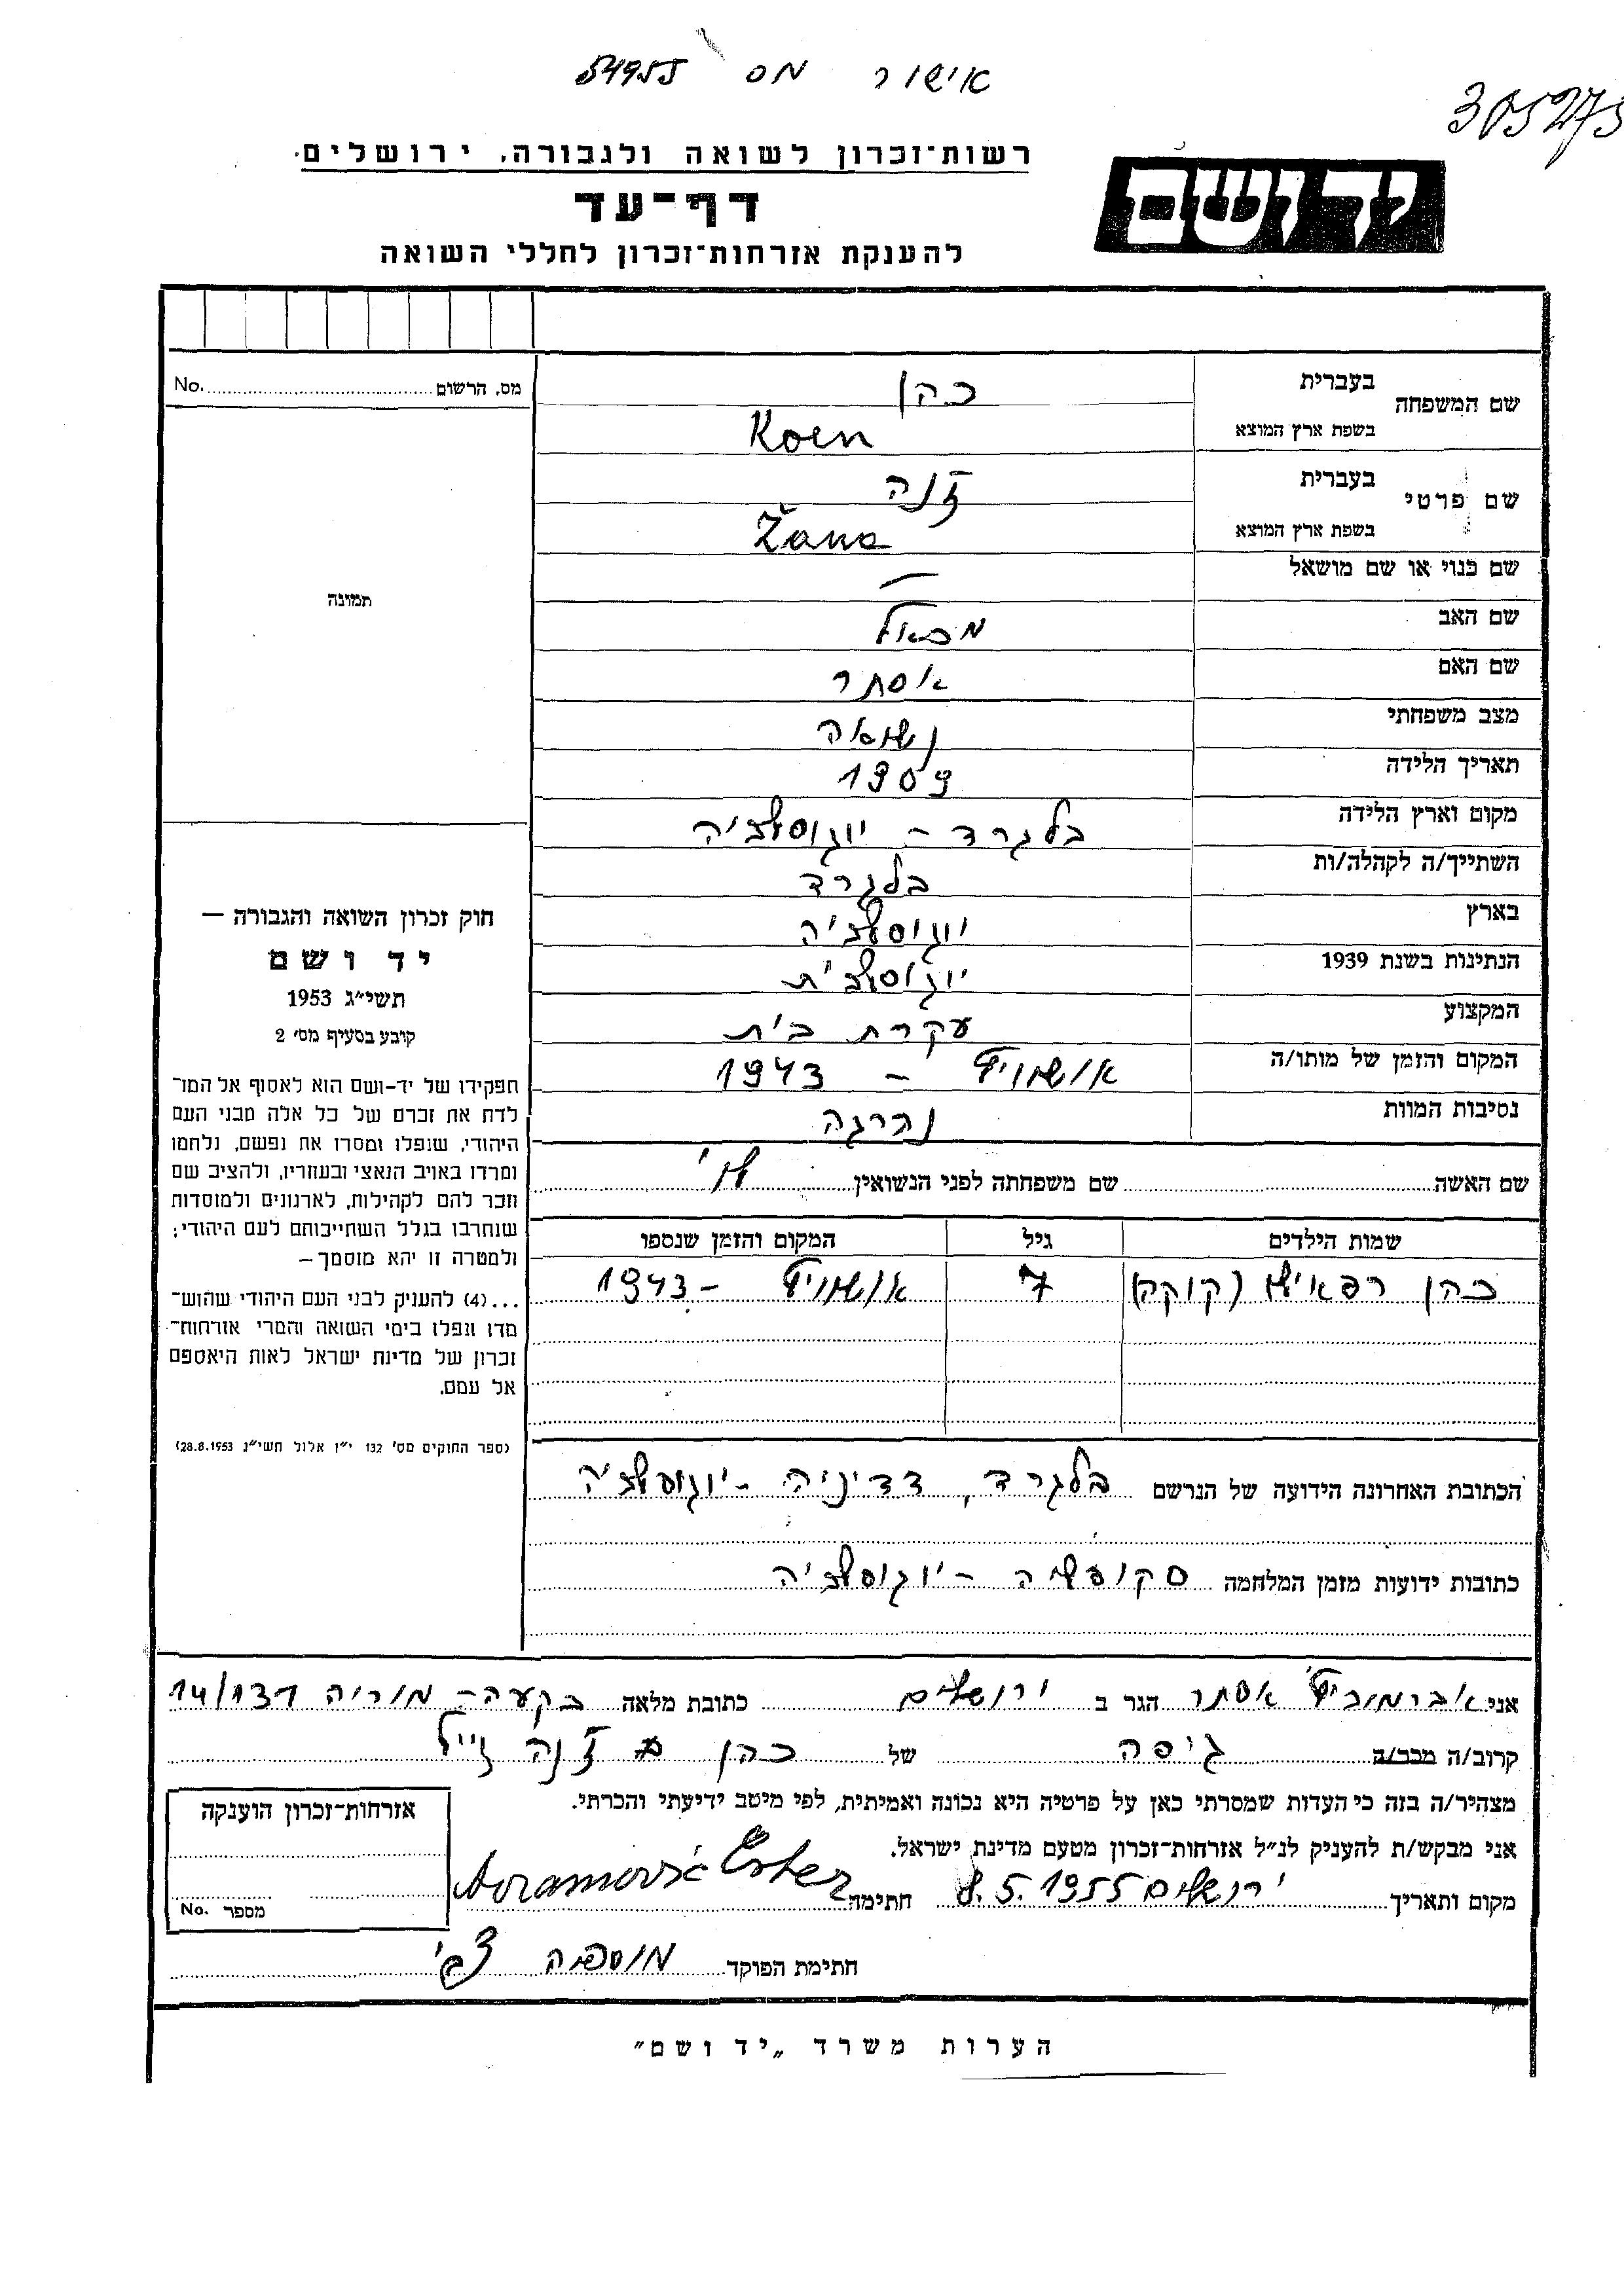 אישור מס 54955
305275
רשות־זכרון לשואה ולגבורה, ירושלים.
ידושם
דף־עד
להענקת אזרחות־זכרון לחללי השואה
מס. הרשום No.
תמונה
שם המשפחה
בעברית כהן
בשפת ארץ המוצא Koen
שם פרטי
בעברית ז'נה
בשפת ארץ המוצא Žana
שם כנוי או שם מושאל —
שם האב מכאל
שם האם אסתר
מצב משפחתי נשואה
תאריך הלידה 1909
מקום וארץ הלידה בלגרד - יוגוסלביה
השתייך/ה לקהלה/ות בלגרד
בארץ יוגוסלביה
הנתינות בשנת 1939 יוגוסלבית
המקצוע עקרת בית
המקום והזמן של מותו/ה אושוויץ - 1943
נסיבות המוות נהרגה
שם האשה שם משפחתה לפני הנשואין
שמות הילדים גיל המקום והזמן שנספו
כהן רפאל (קוקה) 7 אושוויץ - 1943
הכתובת האחרונה הידועה של הנרשם בלגרד, דדיניה - יוגוסלביה
כתובות ידועות מזמן המלחמה סקופליה - יוגוסלביה
חוק זכרון השואה והגבורה —
יד ושם
תשי״ג 1953
קובע בסעיף מס׳ 2
תפקידו של יד-ושם הוא לאסוף אל המו־
לדת את זכרם של כל אלה מבני העם
היהודי, שנפלו ומסרו את נפשם, נלחמו
ומרדו באויב הנאצי ובעוזריו, ולהציב שם
וזכר להם לקהילות, לארגונים ולמוסדות
שנחרבו בגלל השתייכותם לעם היהודי;
ולמטרה זו יהא מוסמך —
...(4) להעניק לבני העם היהודי שהוש־
מדו ונפלו בימי השואה והמרי אזרחות־
זכרון של מדינת ישראל לאות היאספם
אל עמם.
(ספר החוקים מס׳ 132 י״ז אלול תשי״ג 28.8.1953)
אני אברמוביץ' אסתר הגר ב ירושלים כתובת מלאה בקעה - מוריה 14/137
קרוב/ה מכר/ה גיסה של כהן ז'נה ז״ל
מצהיר/ה בזה כי העדות שמסרתי כאן על פרטיה היא נכונה ואמיתית, לפי מיטב ידיעתי והכרתי.
אני מבקש/ת להעניק לנ״ל אזרחות־זכרון מטעם מדינת ישראל.
מקום ותאריך ירושלים 8.5.1955 חתימה Avramović Ester
חתימת הפוקד
אזרחות־זכרון הוענקה
מספר No.
הערות משרד „יד ושם״